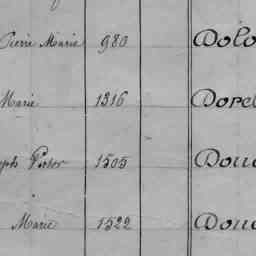 Pierre Marie 980 Dolo
Marie 1316 Dorel
eph Victor 1505 Doue
Marie 1522 Doue